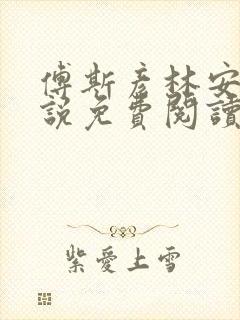 傅斯彦林安
說免費閱讀
紫愛上雪